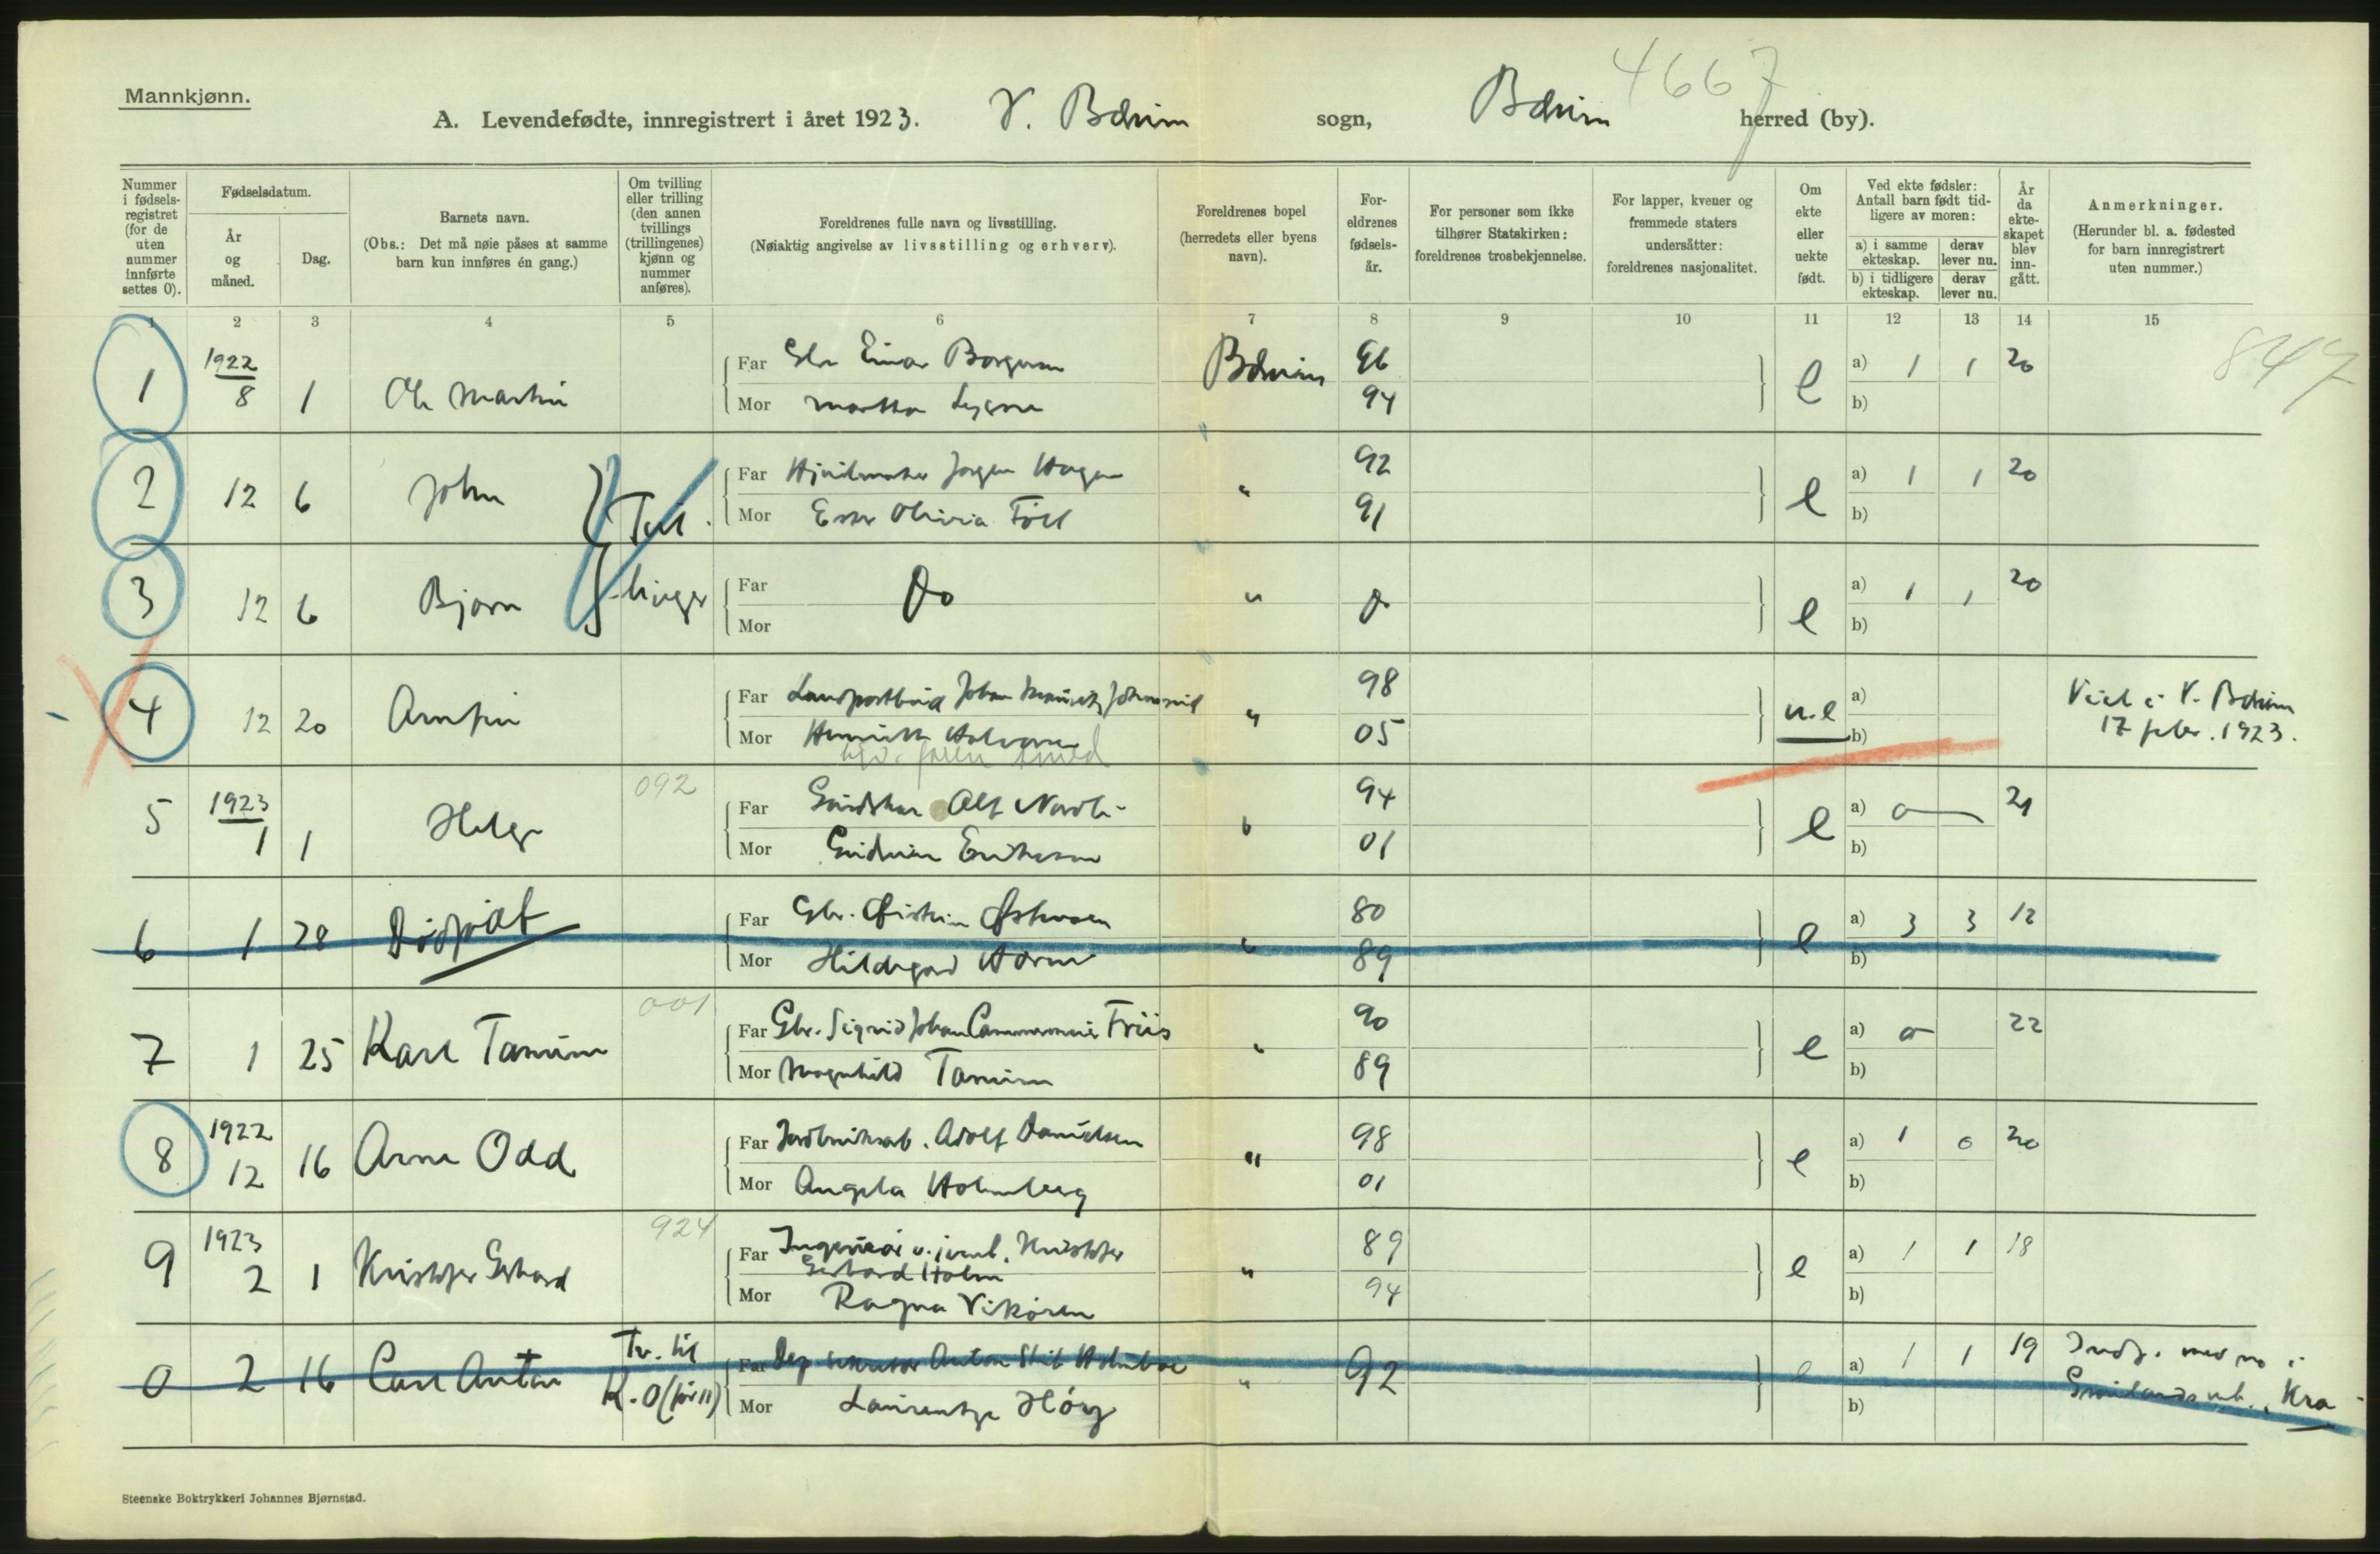 Mannkjønn.
4667
A. Levendefødte, innregistrert i året 1923. V. Bærum sogn, Bærum herred (by).
Nummer i fødsels-registret (for de uten nummer innførte settes 0).
Fødselsdatum.
År og måned.
Dag.
Barnets navn.
(Obs.: Det må nøie påses at samme barn kun innføres én gang.)
Om tvilling eller trilling (den annen tvillings (trillingenes) kjønn og nummer anføres).
Foreldrenes fulle navn og livsstilling.
(Nøiaktig angivelse av livsstilling og erhverv).
Foreldrenes bopel (herredets eller byens navn).
For-eldrenes fødsels-år.
For personer som ikke tilhører Statskirken: foreldrenes trosbekjennelse.
For lapper, kvener og fremmede staters undersåtter: foreldrenes nasjonalitet.
Om ekte eller uekte født.
Ved ekte fødsler: Antall barn født tid-ligere av moren:
a) i samme ekteskap.
derav lever nu.
b) i tidligere ekteskap.
derav lever nu.
År da ekte-skapet blev inn-gått.
Anmerkninger.
(Herunder bl. a. fødested for barn innregistrert uten nummer.)
1 2 3 4 5 6 7 8 9 10 11 12 13 14 15
847
1 1922 8 1 Ole Martin Far Einar Borgersen Bærum 96 e a) 1 1 20
Mor Martha 94 b)
2 12 6 John Tvil- Far Hjulmaker Jørgen Hagen " 92 e a) 1 1 20
Mor Olivia 91 b)
3 12 6 Bjørn linger Far Do " Do e a) 1 1 20
Mor b)
4 12 20 Arnfin Far Landpostbud Johan " 98 u.e a) Viet i V. Bærum
Mor Halvorsen 05 b) 17 febr. 1923.
092
5 1923 1 1 Helge Far Alf Nordli " 94 e a) 0 21
Mor Eriksen 01 b)
6 1 28 Dødfødt Far Gbr. " 80 e a) 3 3 12
Mor Hildegard 89 b)
001
7 1 25 Karl Tanum Far Gbr. Sigurd Johan Cammermeier Friis " 90 e a) 0 22
Mor Magnhild Tanum 89 b)
8 1922 12 16 Arne Odd Far Jordbruksarb. Adolf Danielsen " 98 e a) 1 0 20
Mor Angela Holmberg 01 b)
924
9 1923 2 1 Kristofer Gerhard Far Ingeniør v. jernb. Kristofer " 89 e a) 1 1 18
Gerhard Holm
Mor Ragna Vikören 94 b)
0 2 16 Carl Anton Tv. til Far Dep sekretær Anton Holmboe " 92 e a) 1 1 19 Indf. med no i
K. 0 (før 11) Mor Laurentze Høeg b) Kra
Steenske Boktrykkeri Johannes Bjørnstad.